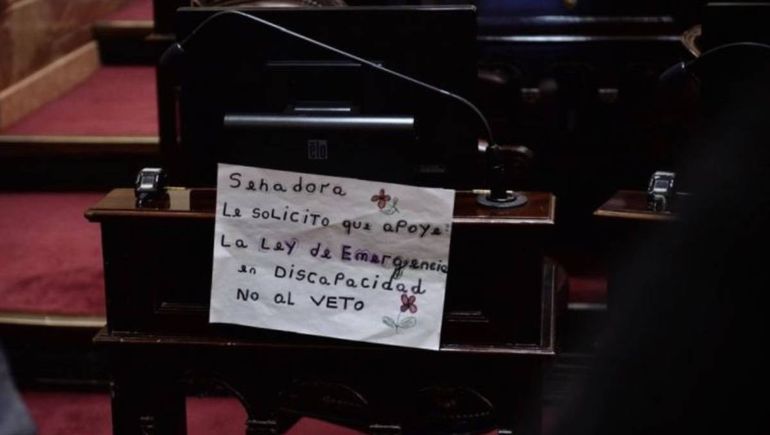 elo
Senadora
Le SoLicito que aPoye:
La Ley de Emergencia
en DISCaPaCidad
No al VETO